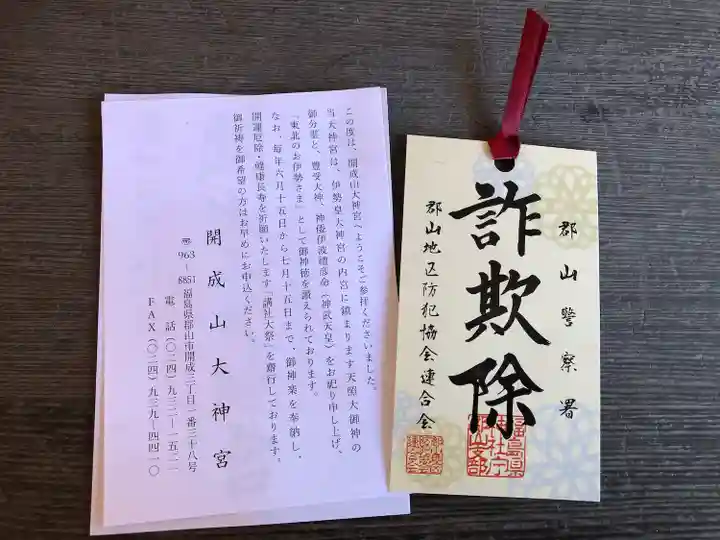 この度は、開成山大神宮へようこそご参拝くださいました。
当大神宮は、伊勢皇大神宮の内宮に鎮まります天照大御神の
御分霊と、豊受大神、神倭伊波禮彦命(神武天皇)をお祀り申し上げ、
「東北のお伊勢さま」として御神徳を讃えられております。
なお、毎年六月十五日から七月十五日まで、御神楽を奉納し、
開運厄除・健康長寿を祈願いたします「講社大祭」を齋行しております。
御祈祷を御希望の方はお早めにお申込ください。
開成山大神宮
〒963-8851 福島県郡山市開成三丁目一番三十八号
電話(〇二四)九三二-一五二一
FAX(〇二四)九三九-四四一〇
郡山警察署
詐欺除
郡山地区防犯協会連合会
福島県
神社庁
郡山支部